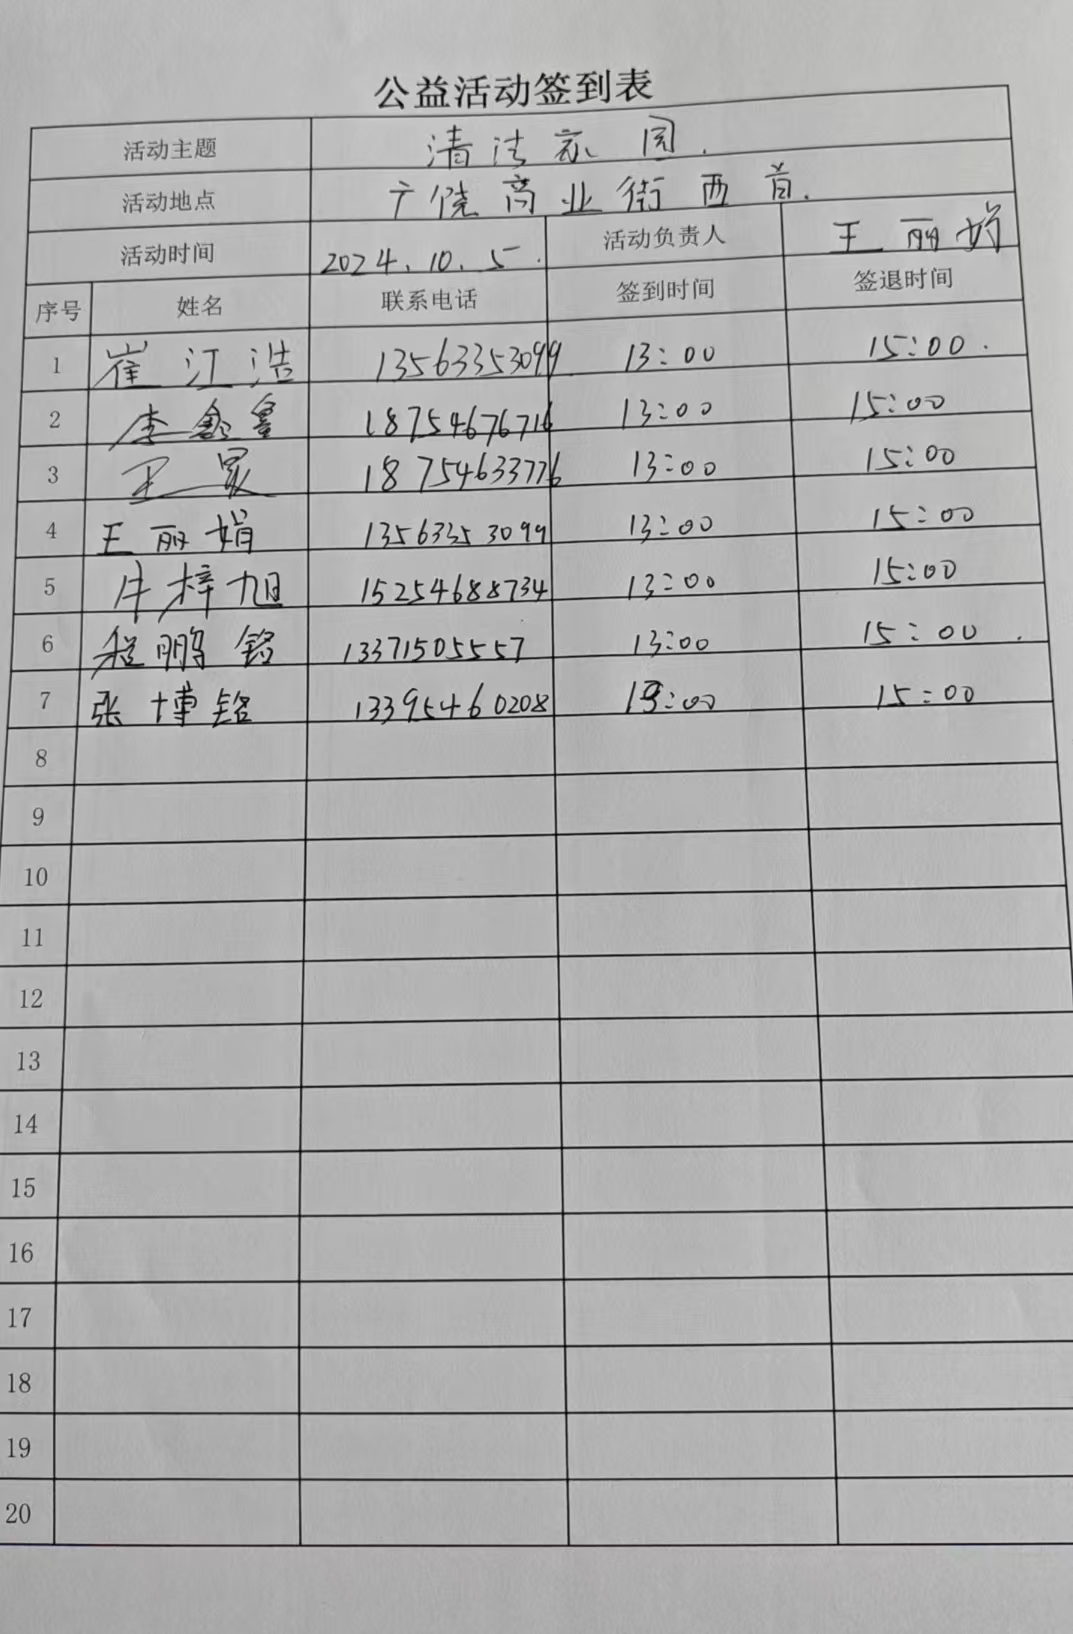 公益活动签到表
活动主题 清洁家园.
活动地点 广饶商业街西首.
活动时间 2024.10.5. 活动负责人 王丽娟
序号 姓名 联系电话 签到时间 签退时间
1 崔江浩 13563353099 13:00 15:00.
2 李鑫鑫 18754676716 13:00 15:00
3 王昊 18754633776 13:00 15:00
4 王丽娟 13563353099 13:00 15:00
5 牛梓旭 15254688734 13:00 15:00
6 程鹏铭 13371505557 13:00 15:00.
7 张博铭 13395460208 13:00 15:00
8
9
10
11
12
13
14
15
16
17
18
19
20